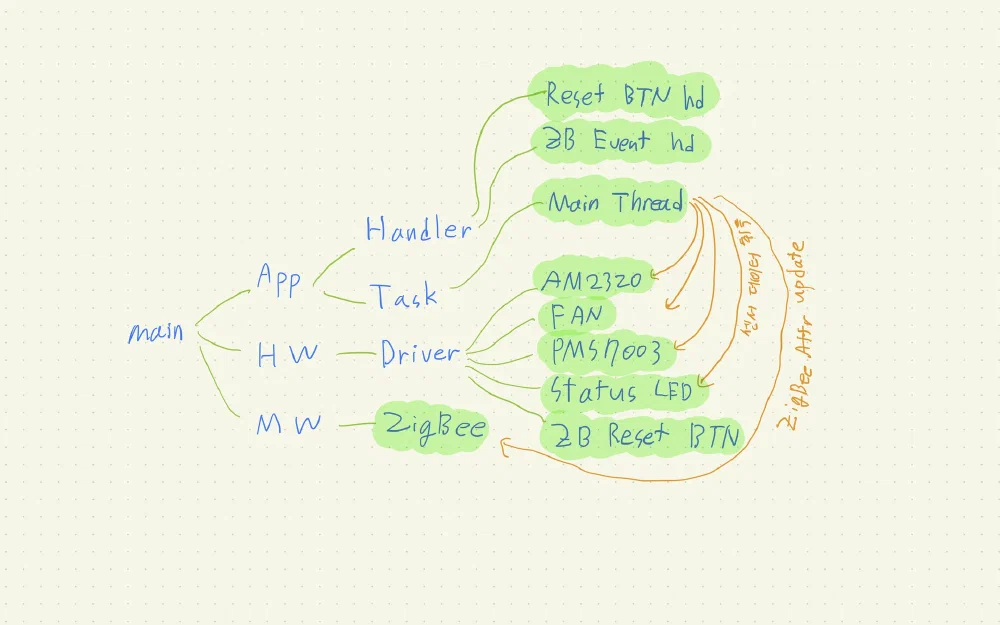 Reset BTN hd
ZB Event hd
Main Thread
Handler
App
Task
AM2320
FAN
main
HW
Driver
PMS7003
Status LED
MW
ZigBee
ZB Reset BTN
센싱 데이터
ZigBee Attr update